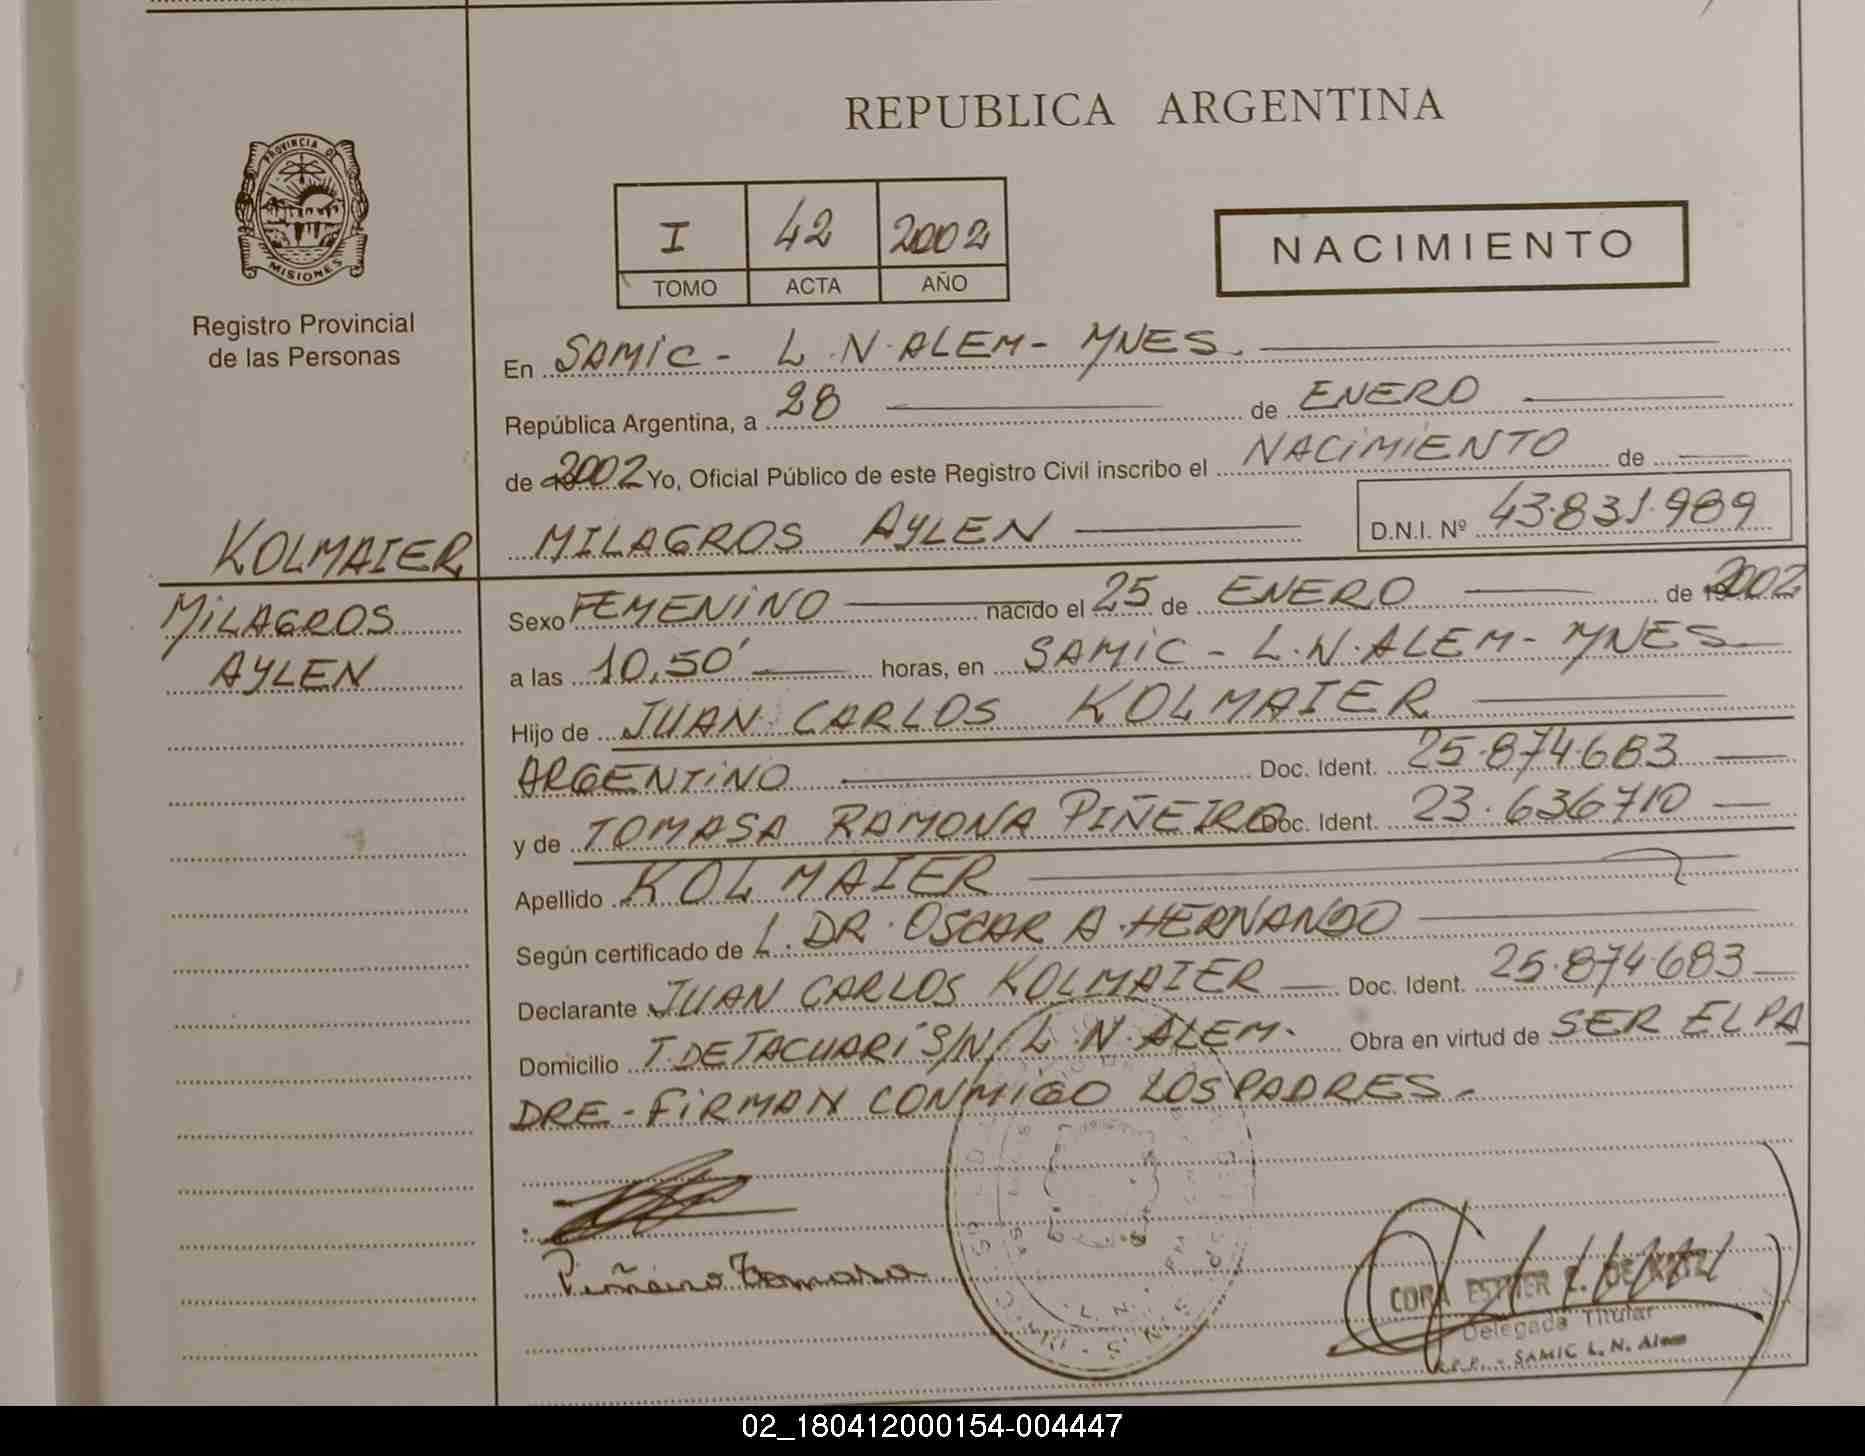 REPUBLICA ARGENTINA
PROVINCIA DE
MISIONES
Registro Provincial
de las Personas
I 42 2002
TOMO ACTA AÑO
NACIMIENTO
En SAMIC - L.N.ALEM - MNES.
República Argentina, a 28 de ENERO
de 2002 Yo, Oficial Público de este Registro Civil inscribo el NACIMIENTO de
KOLMAIER
MILAGROS
AYLEN
MILAGROS AYLEN D.N.I. Nº 43.831.989
Sexo FEMENINO nacido el 25 de ENERO de 2002
a las 10,50' horas, en SAMIC - L.N.ALEM - MNES
Hijo de JUAN CARLOS KOLMAIER
ARGENTINO Doc. Ident. 25.874.683
y de TOMASA RAMONA PIÑEIRO Doc. Ident. 23.636710
Apellido KOLMAIER
Según certificado de L. DR. OSCAR A. HERNANDO
Declarante JUAN CARLOS KOLMAIER Doc. Ident. 25.874.683
Domicilio T.DE TACUARI S/N L.N.ALEM. Obra en virtud de SER EL PA
DRE - FIRMAN CONMIGO LOS PADRES.
Piñeiro Tomasa
CORA ESTHER
Delegada Titular
SAMIC L. N. Alem
02_180412000154-004447